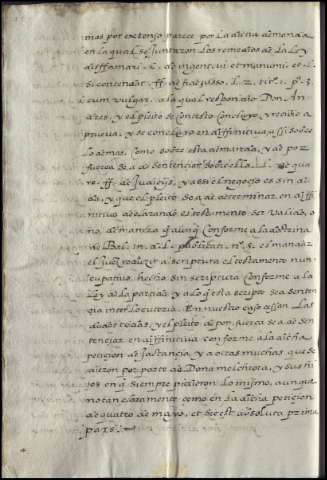 mas por extenso parece por la dicha demanda
en la qual se juntaron los remedios de la ley
diffamari .C. de ingenui. et manumi. et .l.
si contendat .ff. de fideiusso. l. 2. titu. 2. p. 3.
cum vulgar. a la qual respondio Don An
dres, y el pleito se contesto concluyo, y recibio a
prueva, y se concluyo en diffinitiva, assi sobre
lo demas, como sobre esta demanda, y de por
fuerça se a de sentenciar sobre ella .l. de qua
re .ff. de Iudicijs, y assi el negocio es sin du
da, y que el pleito se a de determinar en diffi
nitiva declarando el testamento ser valido, o
no,
conforme a la doctrina
de Bal. in .d. l. n.º 5. es mandar
el juez reduzir a scriptura el testamento nun
cupativo, hecho sin scriptura conforme a la
ley de la partida, y a lo q esta escripto sea senten
çia interlocutoria. En nuestro caso cessan las
dichas dubdas, y el pleito de por fuerça se a de sen
tençiar en diffinitiva conforme a la dicha
petiçion de Instancia, y a otras muchas que se
dieron por parte de Doña Melchiora, y sus hi
jos en q siempre pidieron lo mismo, aunque
no tan claramente como en la dicha petiçion
de quatro de mayo, et sic est absoluta prima
pars.